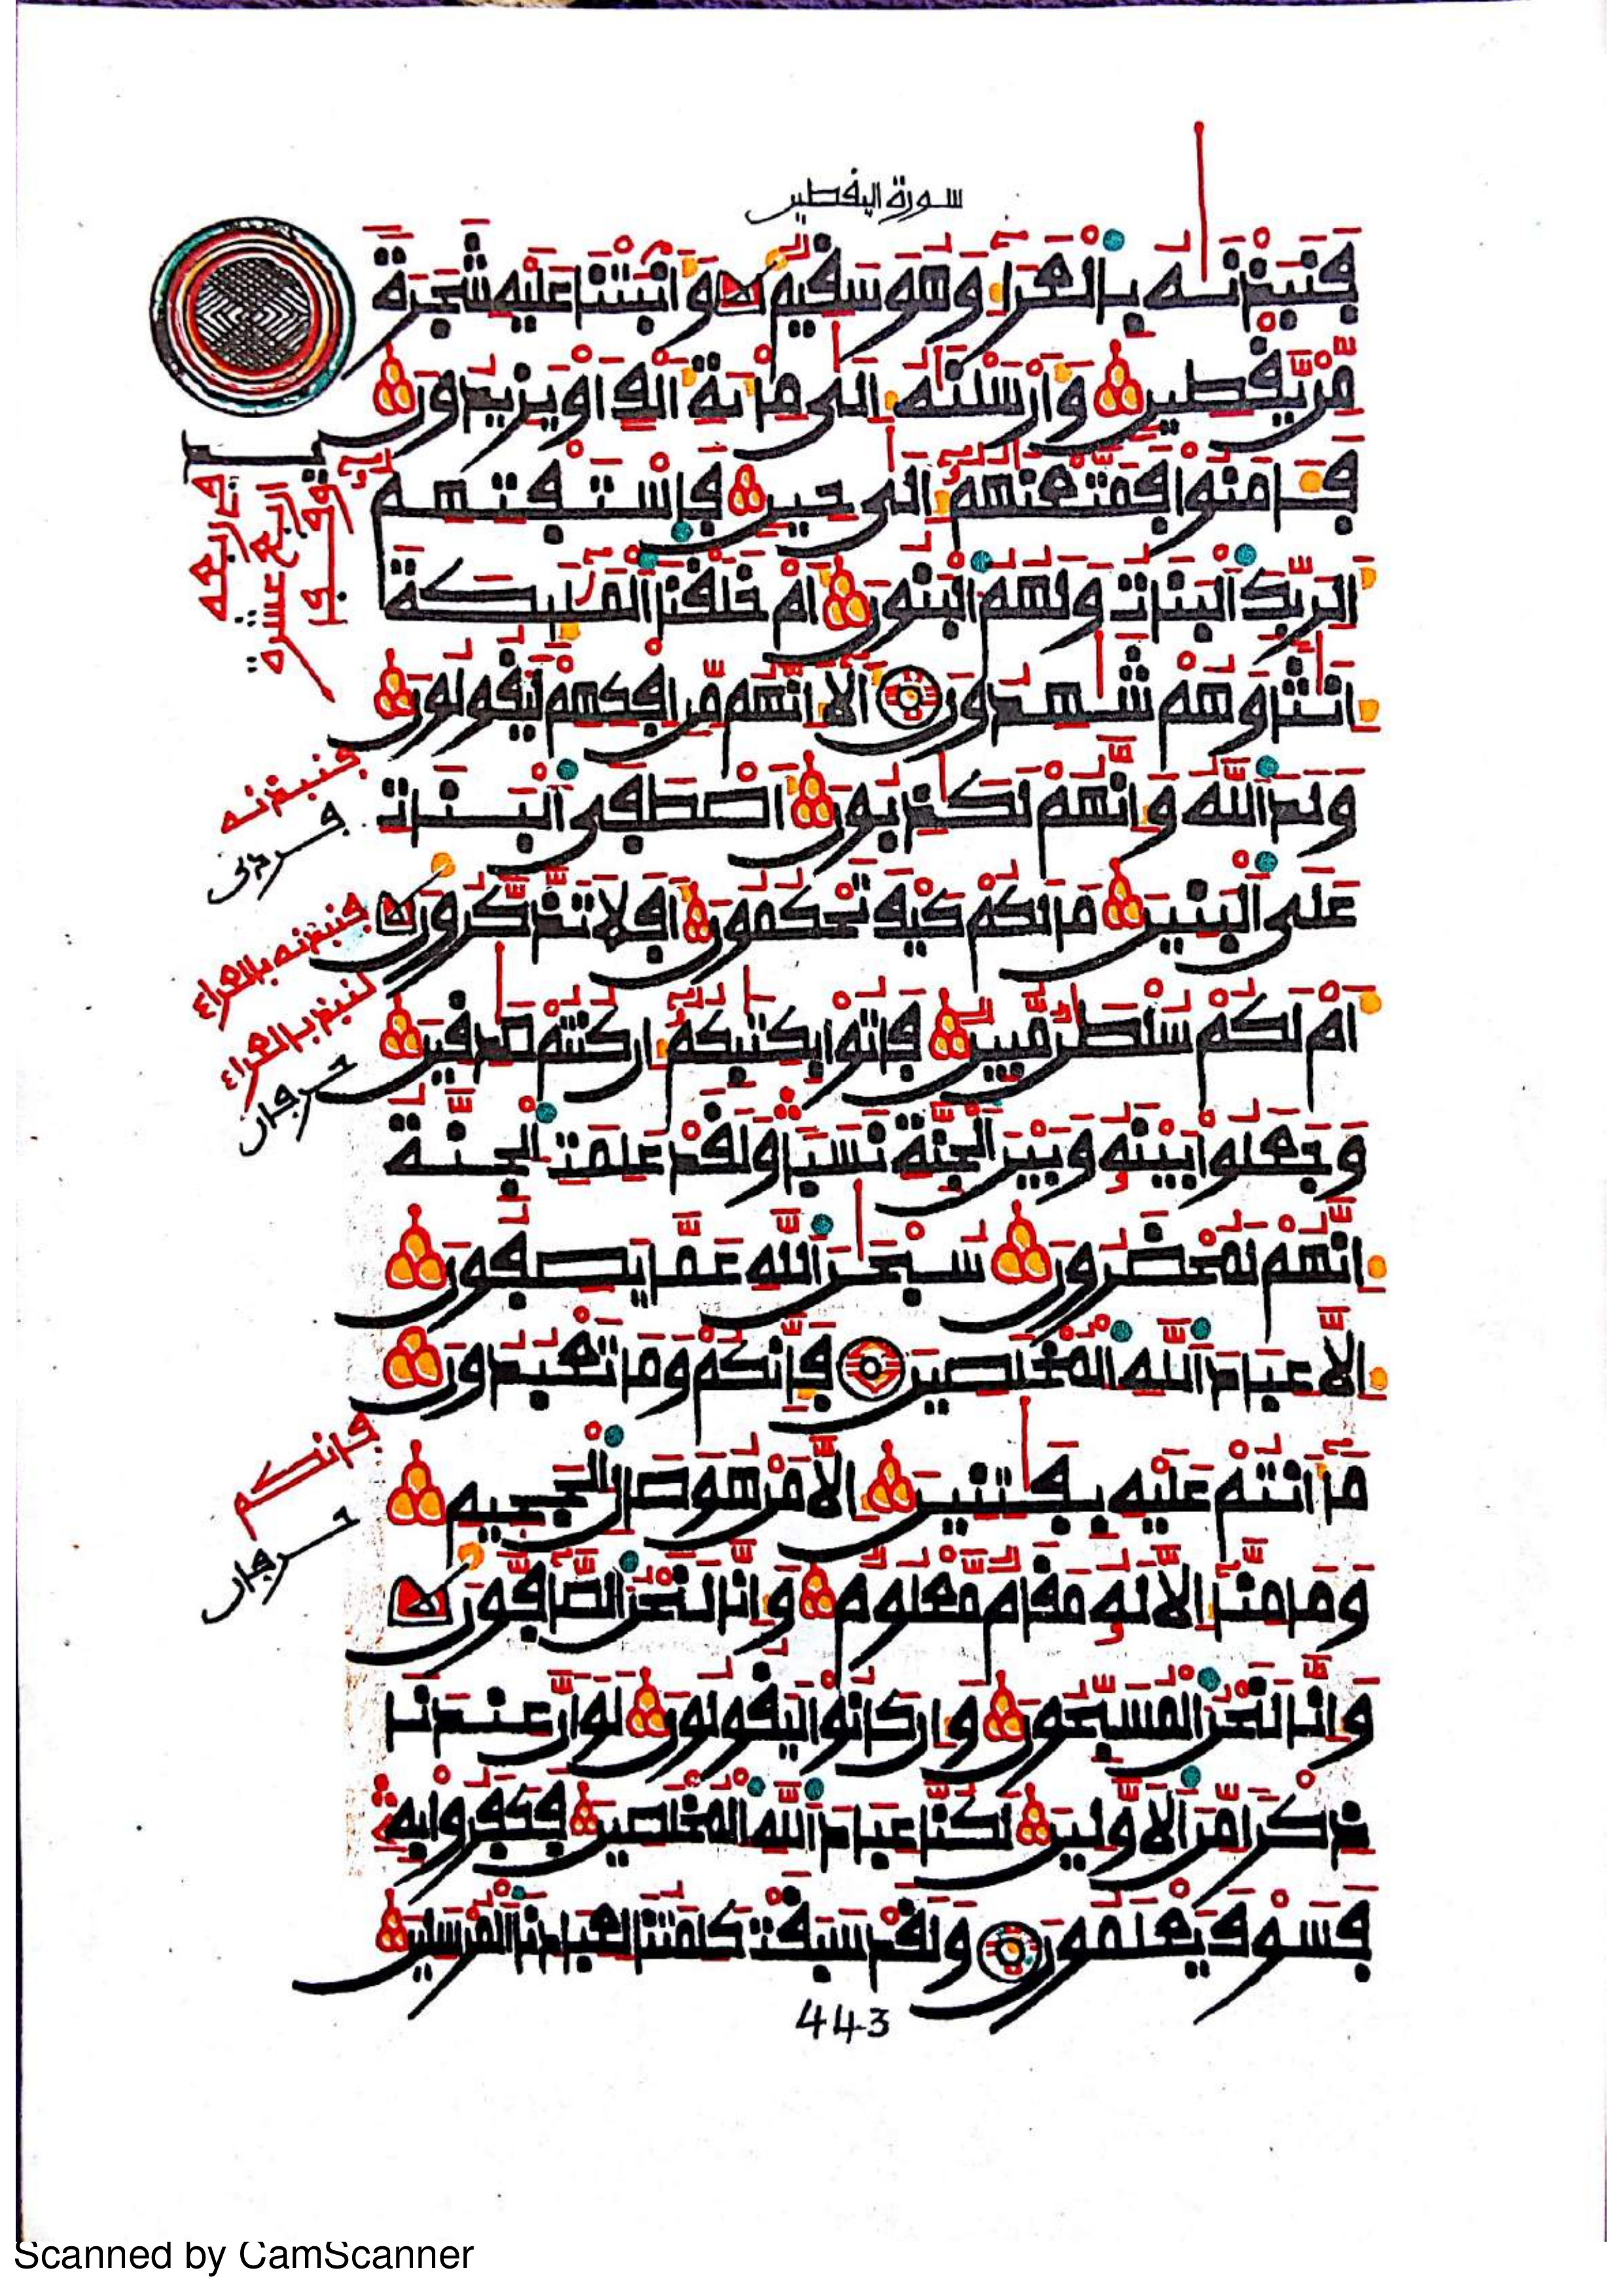 سورة اليقطين
فَنَبَذْنَٰهُ بِالْعَرَاءِ وَهُوَ سَقِيمٌ وَأَنۢبَتْنَا عَلَيْهِ شَجَرَةً
مِّنْ يَّقْطِينٍ وَأَرْسَلْنَٰهُ إِلَىٰ مِائَةِ أَلْفٍ أَوْ يَزِيدُونَ
فَـَٔامَنُوا فَمَتَّعْنَٰهُمْ إِلَىٰ حِينٍ فَاسْتَفْتِهِمْ
أَلِرَبِّكَ الْبَنَاتُ وَلَهُمُ الْبَنُونَ أَمْ خَلَقْنَا الْمَلَٰئِكَةَ
إِنَٰثًا وَهُمْ شَٰهِدُونَ أَلَا إِنَّهُم مِّنْ إِفْكِهِمْ لَيَقُولُونَ
وَلَدَ اللَّهُ وَإِنَّهُمْ لَكَٰذِبُونَ أَصْطَفَى الْبَنَاتِ
عَلَى الْبَنِينَ مَا لَكُمْ كَيْفَ تَحْكُمُونَ أَفَلَا تَذَّكَّرُونَ
أَمْ لَكُمْ سُلْطَٰنٌ مُّبِينٌ فَاتُوا بِكِتَٰبِكُمُ إِن كُنتُمْ صَٰدِقِينَ
وَجَعَلُوا بَيْنَهُ وَبَيْنَ الْجِنَّةِ نَسَبًا وَلَقَدْ عَلِمَتِ الْجِنَّةُ
إِنَّهُمْ لَمُحْضَرُونَ سُبْحَٰنَ اللَّهِ عَمَّا يَصِفُونَ
إِلَّا عِبَادَ اللَّهِ الْمُخْلَصِينَ فَإِنَّكُمْ وَمَا تَعْبُدُونَ
مَا أَنتُمْ عَلَيْهِ بِفَٰتِنِينَ إِلَّا مَنْ هُوَ صَالِ الْجَحِيمِ
وَمَا مِنَّا إِلَّا لَهُ مَقَامٌ مَّعْلُومٌ وَإِنَّا لَنَحْنُ الصَّافُّونَ
وَإِنَّا لَنَحْنُ الْمُسَبِّحُونَ وَإِن كَانُوا لَيَقُولُونَ لَوْ أَنَّ عِندَنَا
ذِكْرًا مِّنَ الْأَوَّلِينَ لَكُنَّا عِبَادَ اللَّهِ الْمُخْلَصِينَ فَكَفَرُوا بِهِ
فَسَوْفَ يَعْلَمُونَ وَلَقَدْ سَبَقَتْ كَلِمَتُنَا لِعِبَادِنَا الْمُرْسَلِينَ
فنبذنه
فنبذنه بالعراء
لنبذ بالعراء
فإنكم
443
Scanned by CamScanner